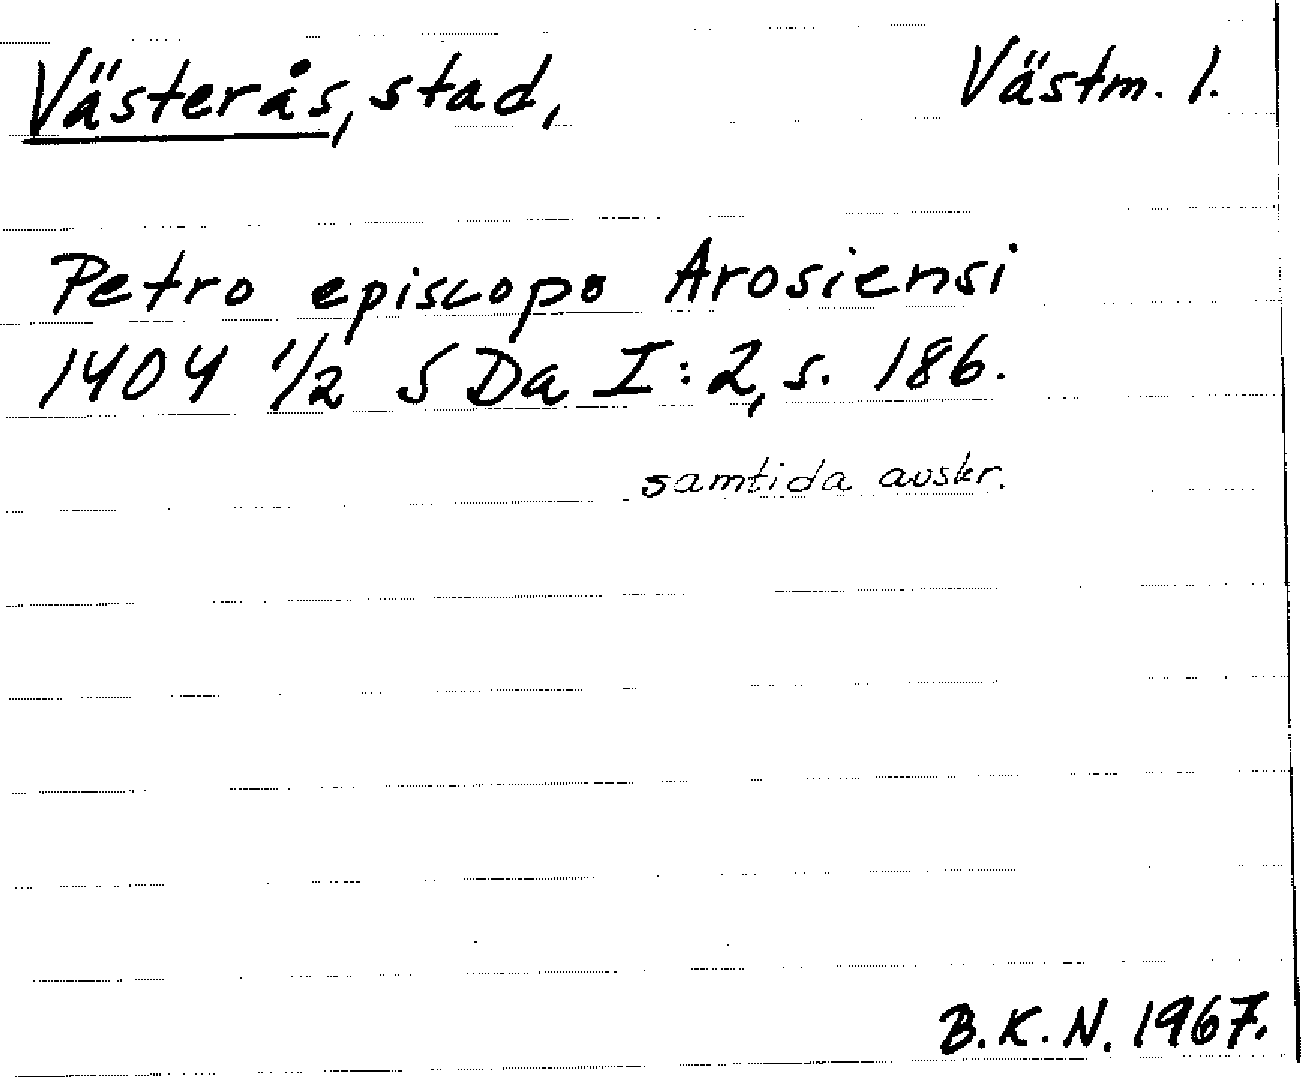 Västerås, stad, Västm. l.
Petro episcopo Arosiensi
1404 1/2 SDa I:2, s. 186.
samtida avskr.
B.K.N. 1967.